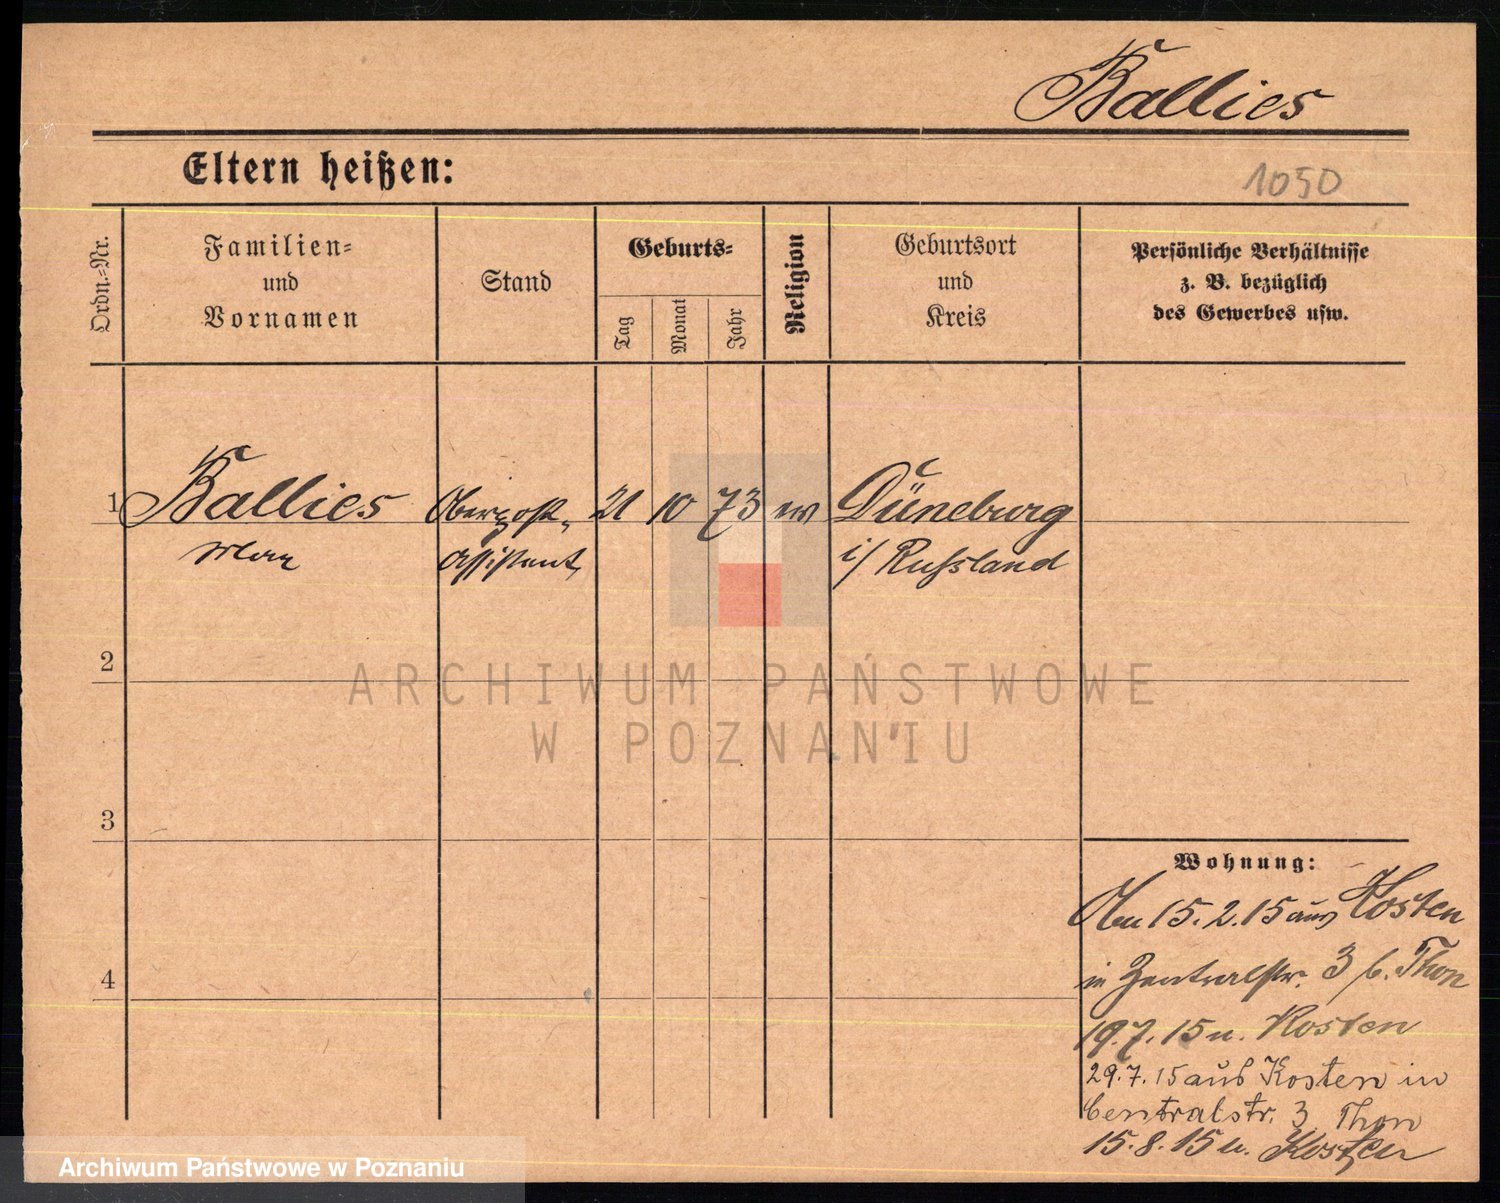 Ballies
Eltern heißen:
1050
Ordn.-Nr.
Familien-
und
Vornamen
Stand
Geburts-
Tag
Monat
Jahr
Religion
Geburtsort
und
Kreis
Persönliche Verhältnisse
z. B. bezüglich
des Gewerbes usw.
1 Ballies Oberpost- 21 10 73 ev Düneburg
Max assistent i/ Russland
2
3
4
Wohnung:
15.2.15 aus Kosten
in Zentralstr. 3 b. Thon
19.7.15 n. Kosten
29.7.15 aus Kosten in
Centralstr. 3 Thon
15.8.15 n. Kosten
ARCHIWUM PAŃSTWOWE
W POZNANIU
Archiwum Państwowe w Poznaniu